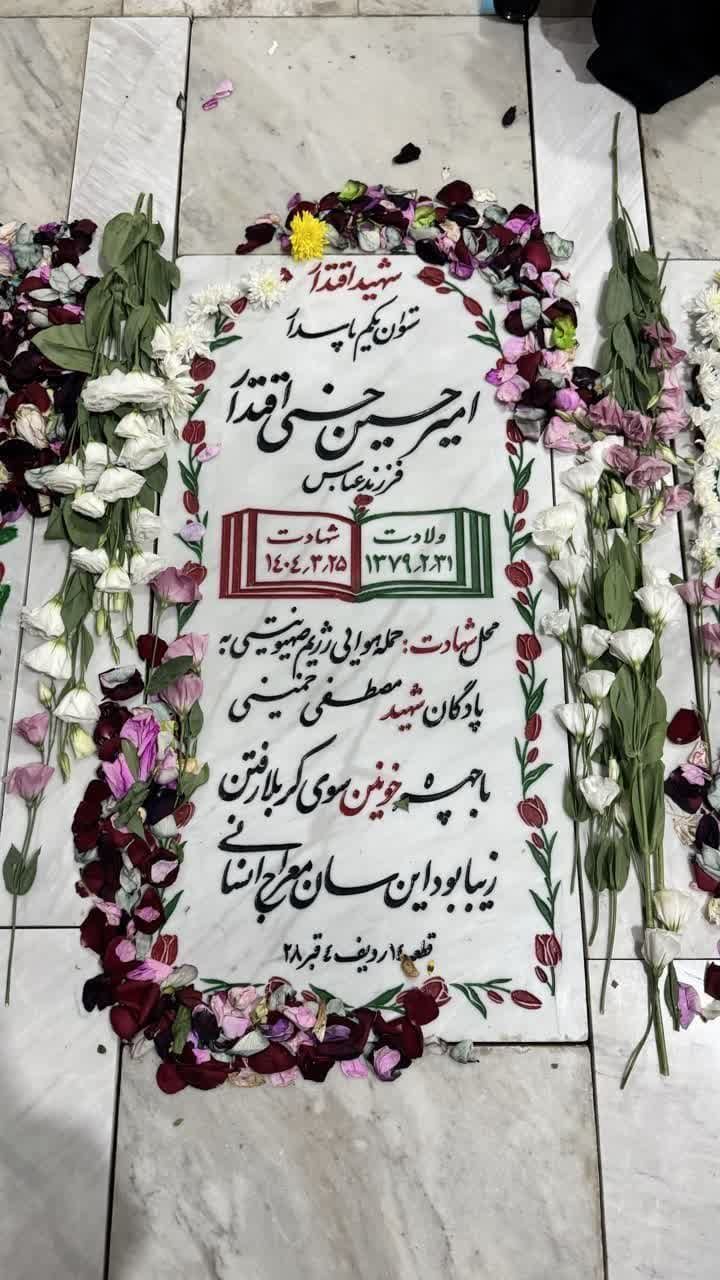 شهید اقتدار
ستوان یکم پاسدار
امیرحسین حسنی اقتدار
فرزند عباس
ولادت
۱۳۷۹٫۲٫۳۱
شهادت
۱۴۰۴٫۳٫۲۵
محل شهادت: حمله هوایی رژیم صهیونیستی به
پادگان شهید مصطفی خمینی
با چهره خونین سوی کربلا رفتن
زیبا بود اینسان معراج انسانی
قطعه ۱۴ ردیف ۴ قبر ۲۸